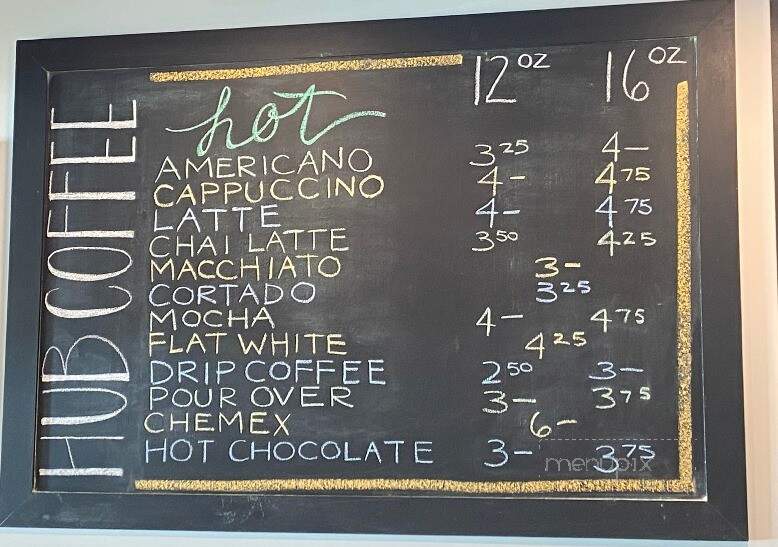 HUB COFFEE
12 OZ 16 OZ
hot
AMERICANO 3 25 4 —
CAPPUCCINO 4 - 4 75
LATTE 4 - 4 75
CHAI LATTE 3 50 4 25
MACCHIATO 3 -
CORTADO 3 25
MOCHA 4 — 4 75
FLAT WHITE 4 25
DRIP COFFEE 2 50 3 -
POUR OVER 3 — 3 75
CHEMEX 6 -
HOT CHOCOLATE 3 - 3 75
menupix